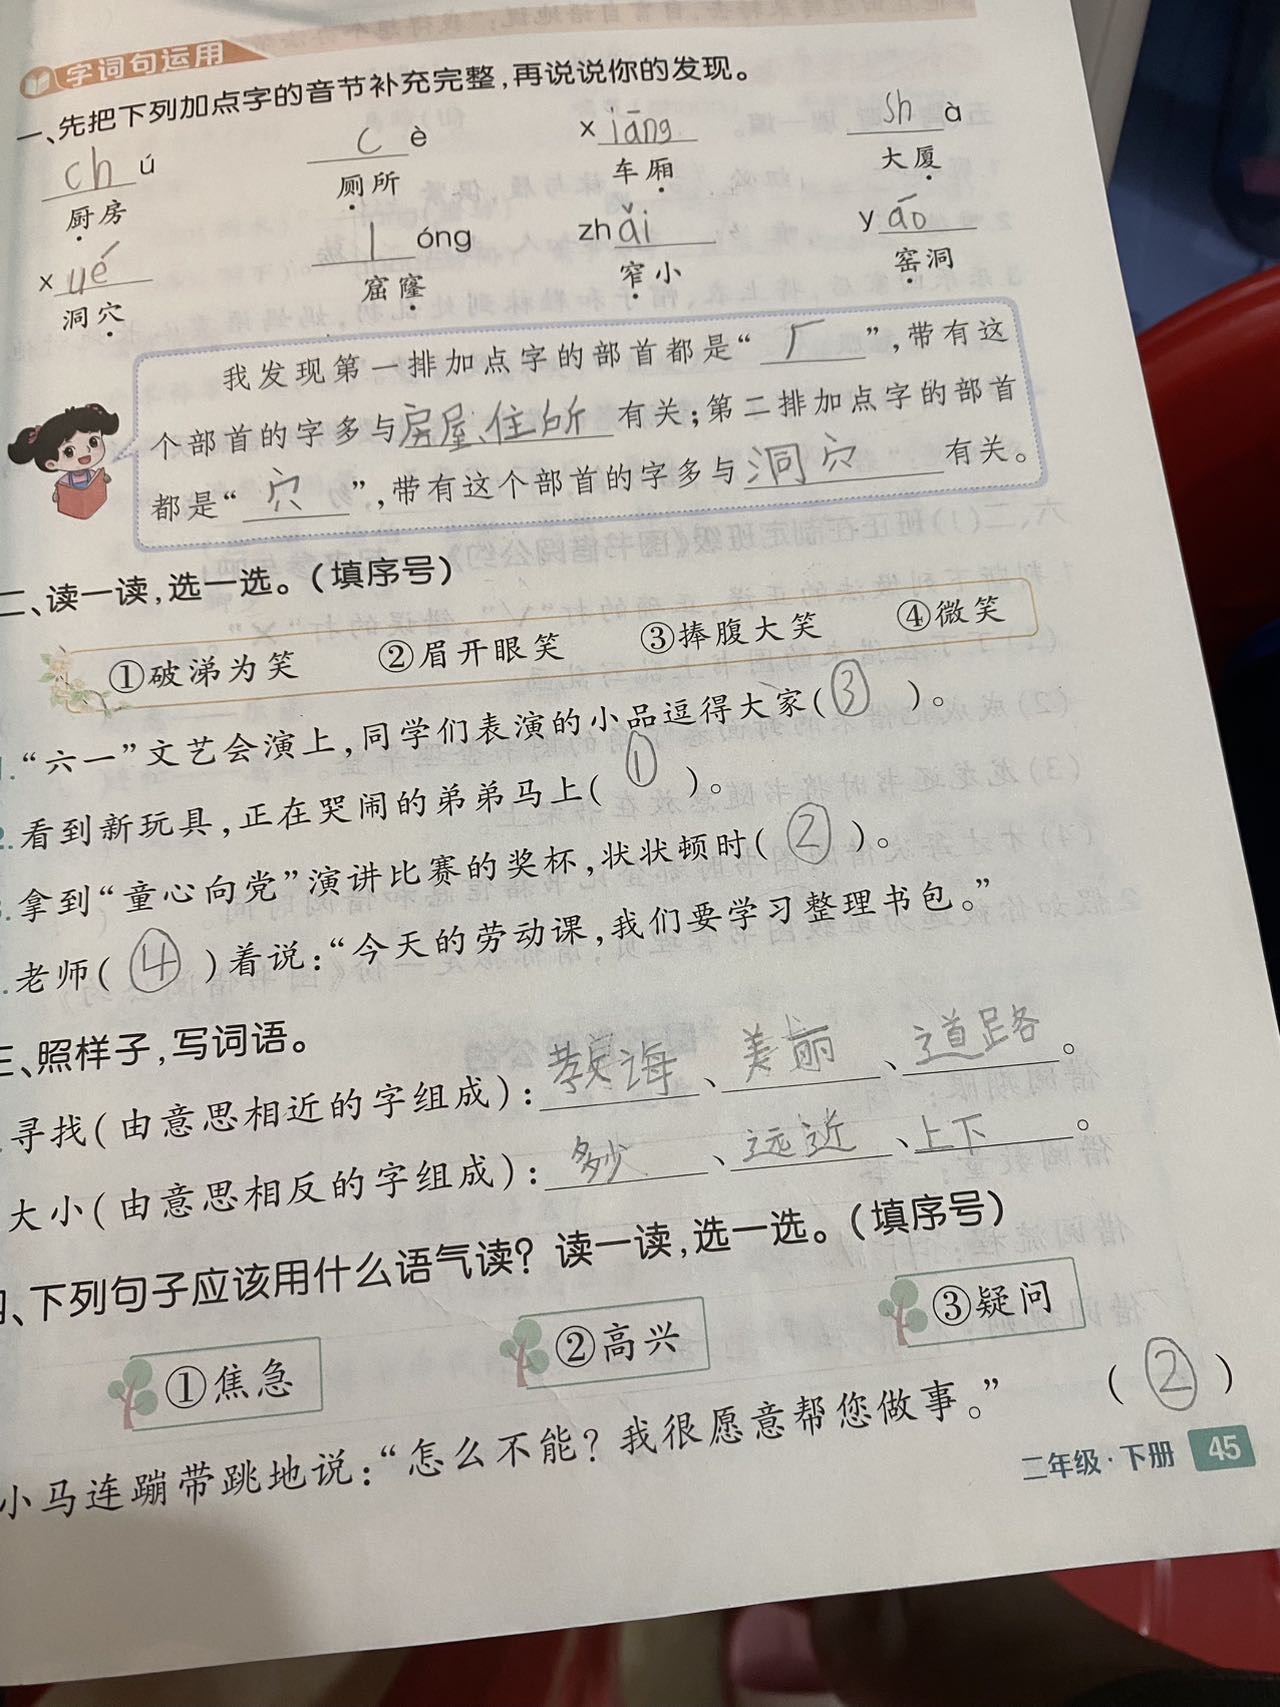 字词句运用
一、先把下列加点字的音节补充完整,再说说你的发现。
ch ú c è x iāng sh à
厨房 厕所 车厢 大厦
x ué l óng zh ǎi y áo
洞穴 窟窿 窄小 窑洞
我发现第一排加点字的部首都是“厂”,带有这
个部首的字多与房屋、住所有关;第二排加点字的部首
都是“穴”,带有这个部首的字多与洞穴有关。
二、读一读,选一选。(填序号)
①破涕为笑 ②眉开眼笑 ③捧腹大笑 ④微笑
1.“六一”文艺会演上,同学们表演的小品逗得大家(③)。
2.看到新玩具,正在哭闹的弟弟马上(①)。
.拿到“童心向党”演讲比赛的奖杯,状状顿时(②)。
.老师(④)着说:“今天的劳动课,我们要学习整理书包。”
三、照样子,写词语。
.寻找(由意思相近的字组成):教诲、美丽、道路。
大小(由意思相反的字组成):多少、远近、上下。
、下列句子应该用什么语气读?读一读,选一选。(填序号)
①焦急 ②高兴 ③疑问
小马连蹦带跳地说:“怎么不能?我很愿意帮您做事。” (②)
二年级·下册 45